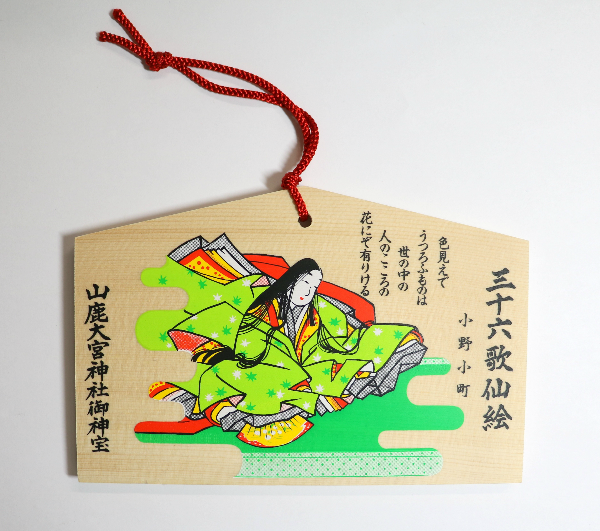 三十六歌仙絵
小野小町
色見えて
うつろふものは
世の中の
人のこころの
花にぞ有りける
山鹿大宮神社御神宝